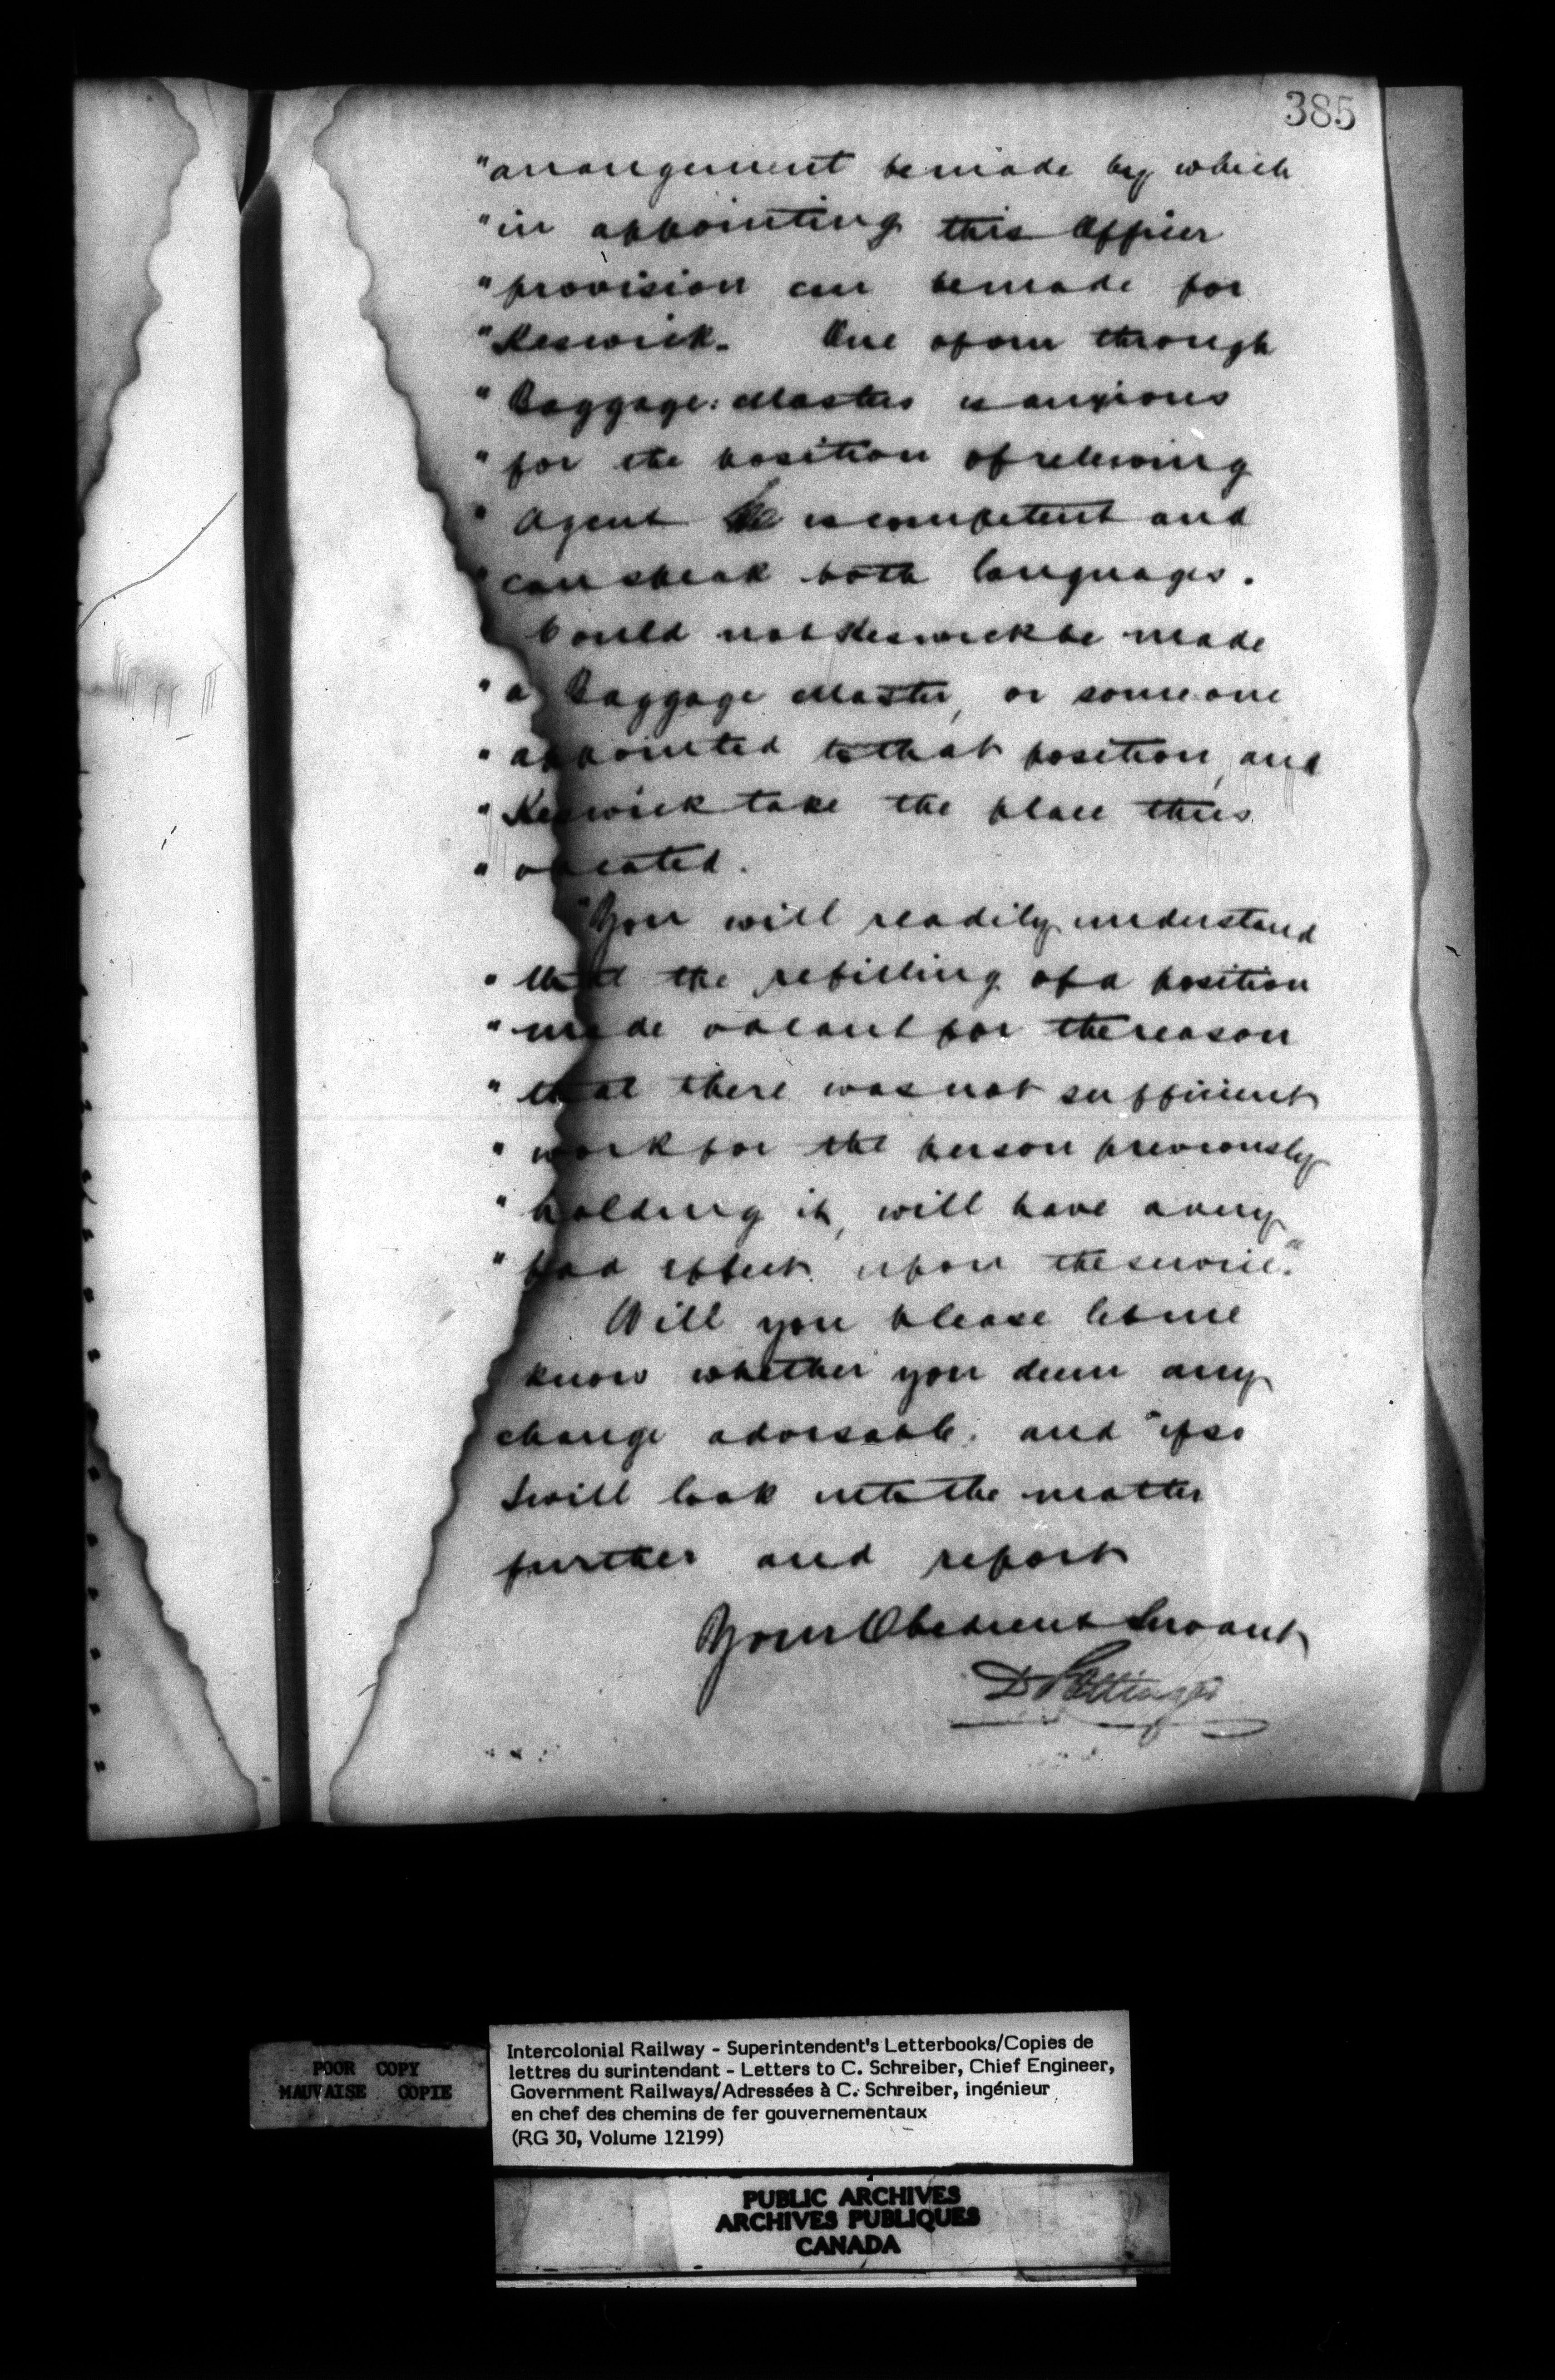 385
"arrangement be made by which
"in appointing this Officer
"provision can be made for
"Keswick. One of our through
"Baggage: Masters is anxious
"for the position of relieving
"Agent He is competent and
"can speak both languages.
Could not Keswick be made
"a Baggage Master, or someone
"appointed to that position, and
"Keswick take the place thus
"vacated.
"You will readily understand
"that the refilling of a position
"made vacant for the reason
"that there was not sufficient
"work for the person previously
"holding it, will have a very
"bad effect upon the service."
Will you please let me
know whether you deem any
change advisable. and if so
I will look into the matter
further and report
Your Obedient Servant
D Pottinger
POOR COPY
MAUVAISE COPIE
Intercolonial Railway - Superintendent's Letterbooks/Copies de
lettres du surintendant - Letters to C. Schreiber, Chief Engineer,
Government Railways/Adressées à C. Schreiber, ingénieur
en chef des chemins de fer gouvernementaux
(RG 30, Volume 12199)
PUBLIC ARCHIVES
ARCHIVES PUBLIQUES
CANADA